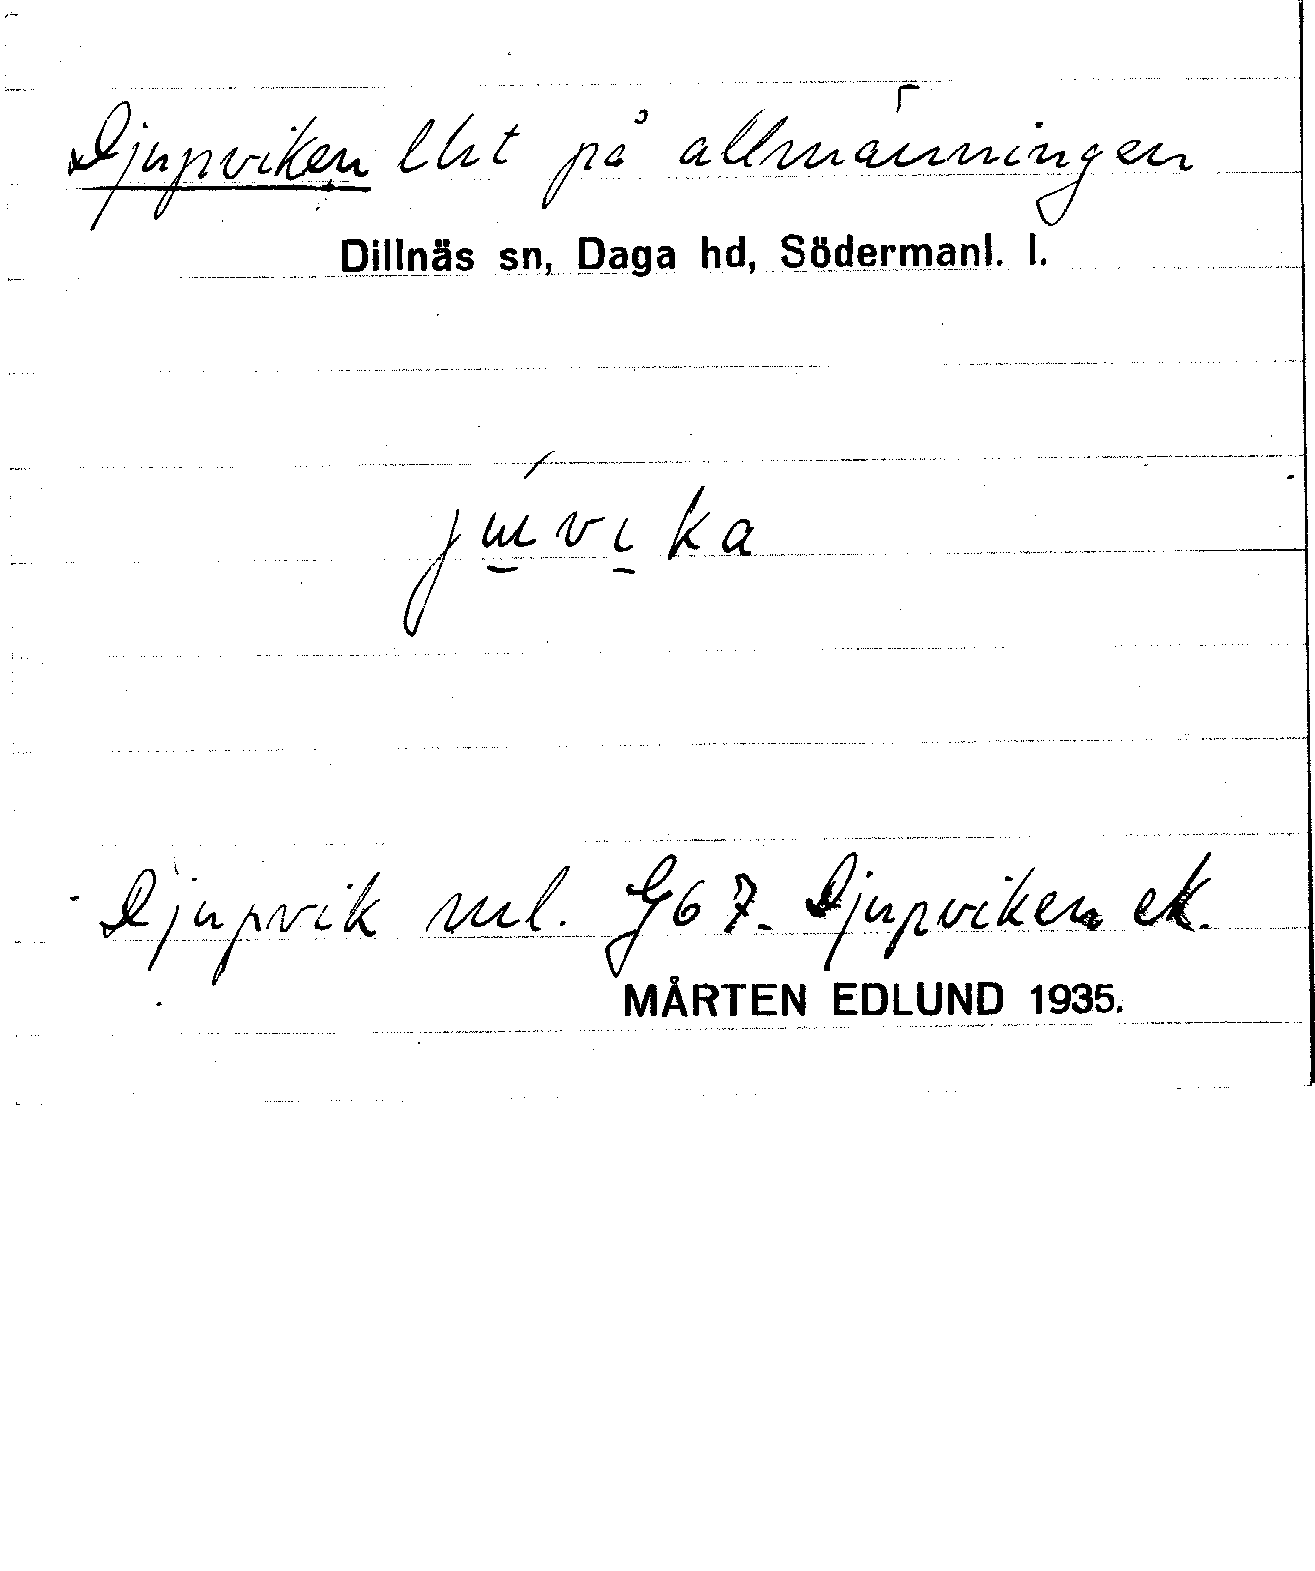 Djupviken lht på allmänningen
Dillnäs sn, Daga hd, Södermanl. l.
jɯvika
Djupvik ml. G67. Djupviken ek.
MÅRTEN EDLUND 1935.